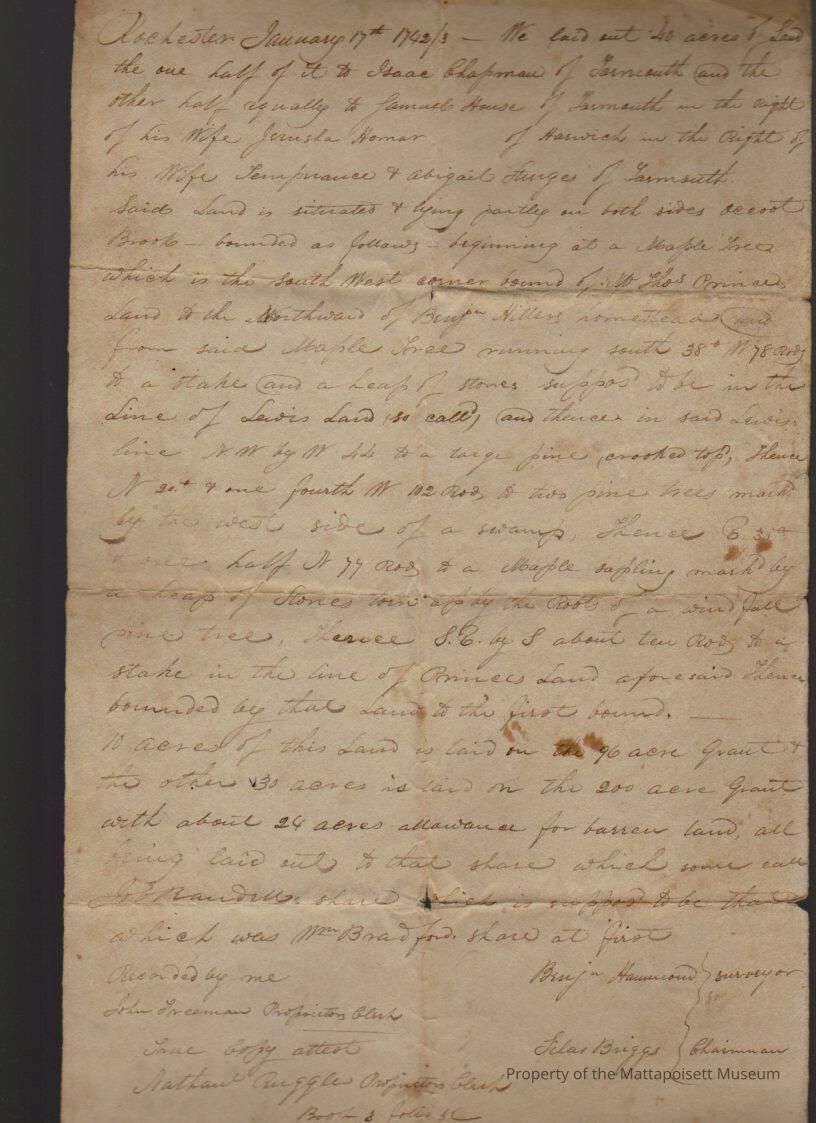 Rochester January 17th 1742/3 — We laid out 40 acres of Land
the one half of it to Isaac Chapman of Yarmouth and the
other half equally to Samuel House of Yarmouth in the right
of his Wife Jerusha Homar of Harwich in the Right of
his Wife Temprance & Abigail Sturges of Yarmouth.
Said Land is situated & lying partly on both sides
Brook — bounded as follows — beginning at a Maple Tree
which is the South West corner bound of Mr Thos Princes
Land to the Northward of Benjn Hillers homestead and
from said Maple Tree running south 38d W 78 Rods
to a stake and a heap of stones suppos'd to be in the
Line of Lewis Land so call'd, and thence in said Lewis
line N W by W 44 to a large pine crooked top, Thence
N 20d & one fourth W 102 Rods to two pine trees mark'd
by the west side of a swamp, Thence E
& one half N 77 Rods to a Maple sapling mark'd by
a heap of Stones torn up by the Roots of a wind fall
pine tree, Thence S.E. by S about ten Rods to a
stake in the line of Princes Land aforesaid Thence
bounded by that Land to the first bound. —
10 acres of this Land is laid on the 96 acre Grant &
the other 30 acres is laid on the 200 acre Grant
with about 24 acres allowance for barren land, all
being laid out to that share which some call
Randells share which is suppos'd to be that
which was Wm Bradfords share at first
Recorded by me Benjn Hammond } surveyor
John Freeman Proprietors Clerk
True Copy attest Silas Briggs { Chairman
Nathanl Ruggles Proprietors Clerk
Property of the Mattapoisett Museum
Book 3 folio